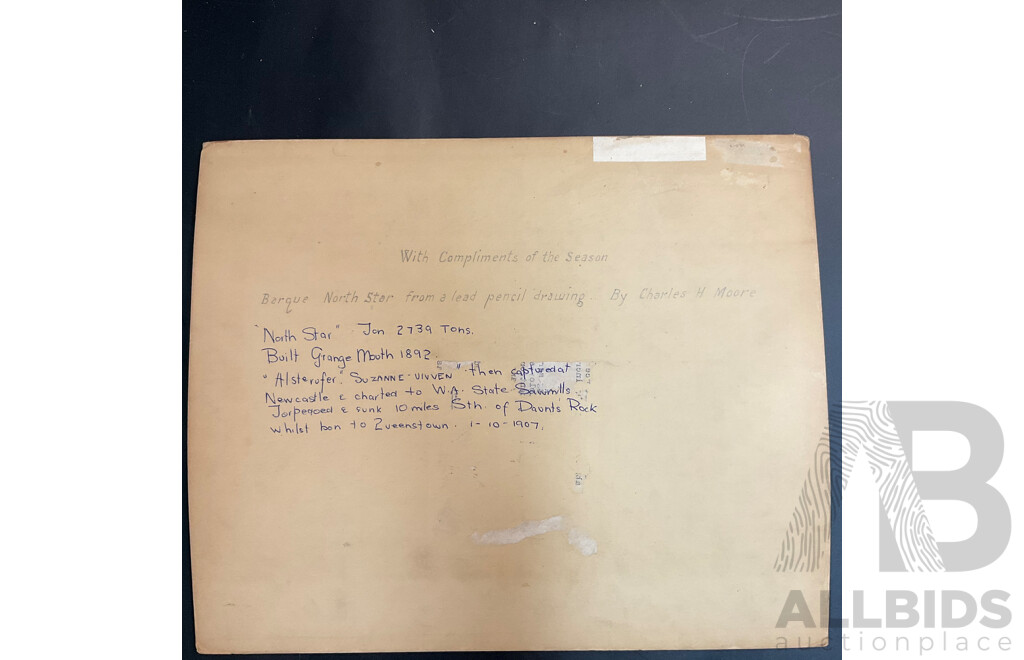 With Compliments of the Season
Barque North Star from a lead pencil drawing. By Charles H Moore
"North Star" Ion 2739 Tons.
Built Grange Mouth 1892
"Alsterufer". SUZANNE-VIVVEN" then captured at
Newcastle & charted to W.A. State Sawmills
Torperoed & sunk 10 miles Sth. of Daunts Rock
whilst bon to Queenstown. 1-10-1907.
AB
ALLBIDS
auctionplace